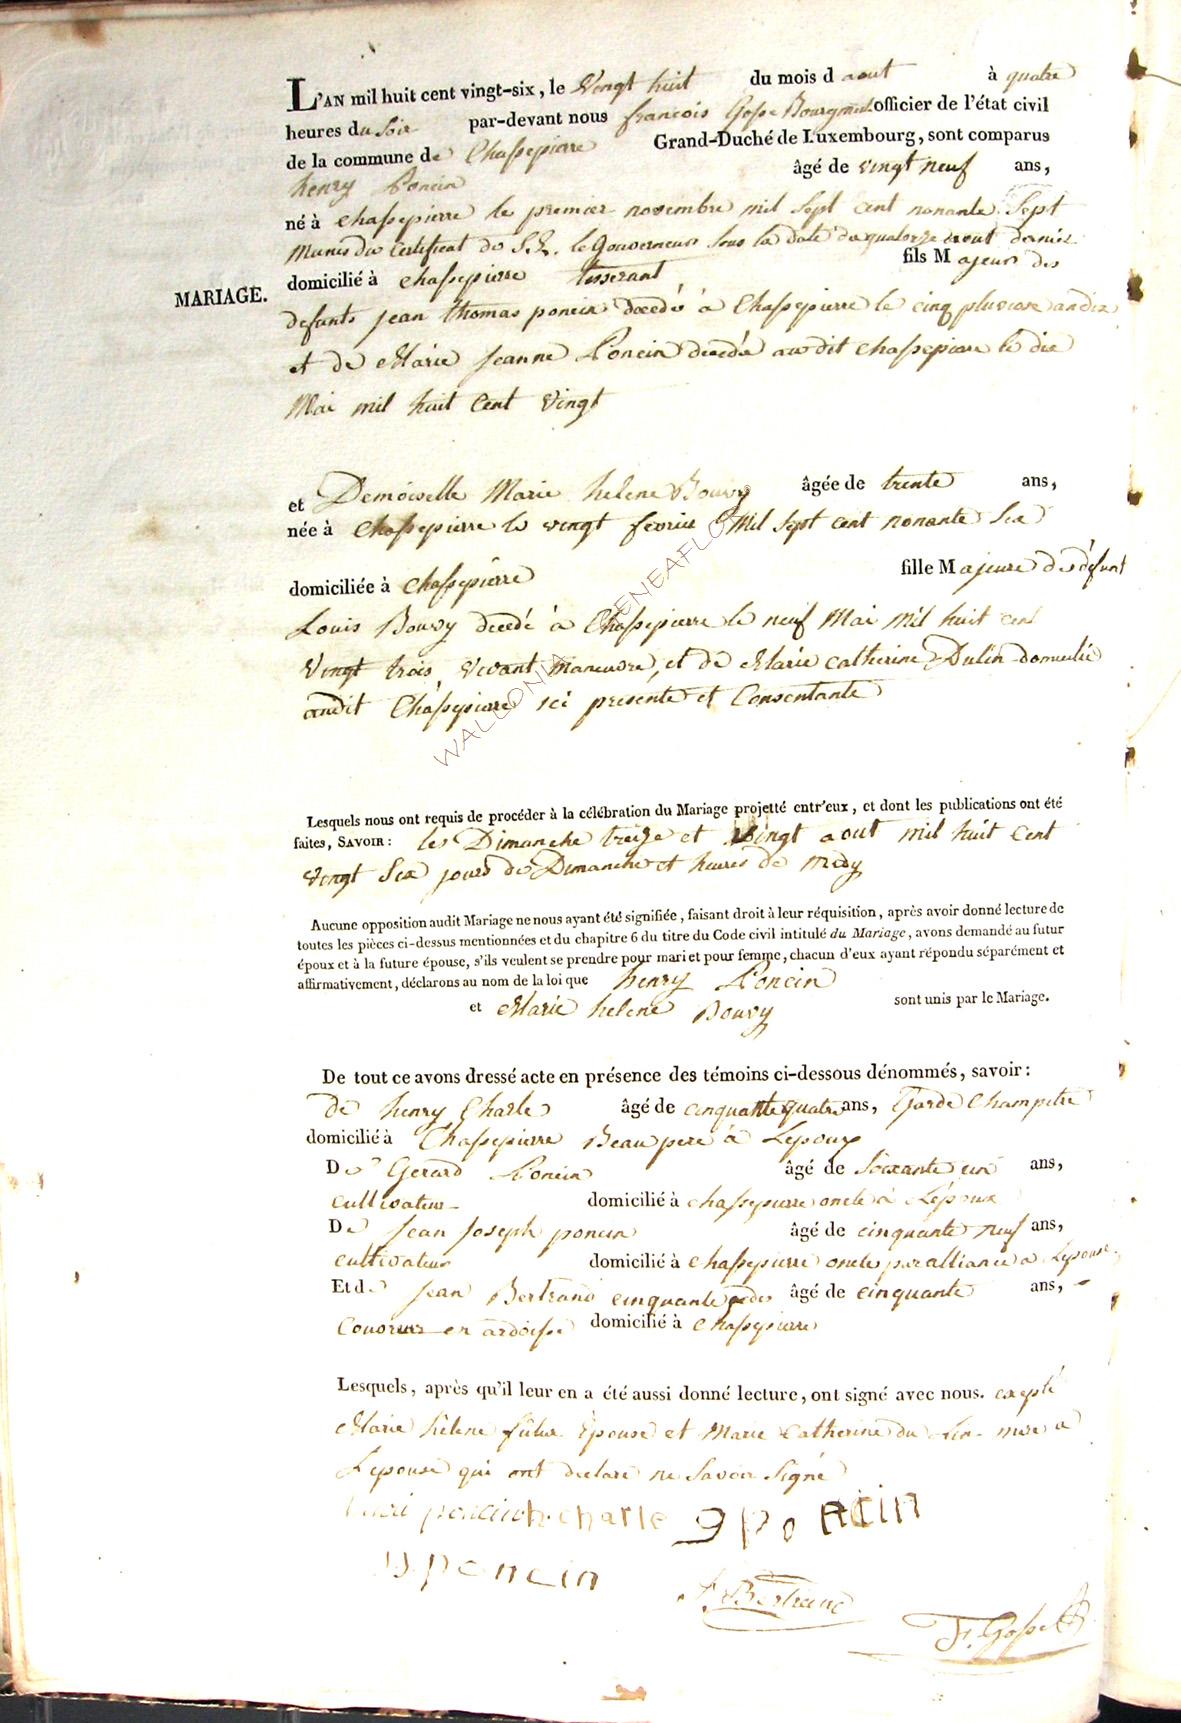 L'AN mil huit cent vingt-six, le Vingt huit du mois d aout à quatre
heures du Soir par-devant nous françois Gosse Bourgmest officier de l'état civil
de la commune de Chassepierre Grand-Duché de Luxembourg, sont comparus
henry Poncin âgé de vingt neuf ans,
né à Chassepierre le premier novembre mil Sept Cent nonante Sept
Munis du Certificat de S. E. le Gouverneur Sous la date du quatorze aout dernier
MARIAGE.
domicilié à Chassepierre tisserant fils Majeur des
defunts jean thomas poncin decedé à Chassepierre le cinq pluviose an dix
et de Marie Jeanne Poncin decedée audit Chassepierre le dix
Mai mil huit Cent Vingt
et Demoiselle Marie helene Bouvy âgée de trente ans,
née à Chassepierre le vingt fevrier Mil Sept cent nonante Six
domiciliée à Chassepierre fille Majeure de défunt
Louis Bouvy decedé à Chassepierre le neuf Mai Mil huit cent
Vingt trois, vivant manœuvre, et de Marie catherine Dulin domiciliée
audit Chassepierre ici presente et Consentante
WALLONIA GENEAFLO
Lesquels nous ont requis de procéder à la célébration du Mariage projetté entr'eux, et dont les publications ont été
faites, SAVOIR : les Dimanche treize et Vingt aout mil huit Cent
Vingt Six jours de Dimanche et heures de midy
Aucune opposition audit Mariage ne nous ayant été signifiée, faisant droit à leur réquisition, après avoir donné lecture de
toutes les pièces ci-dessus mentionnées et du chapitre 6 du titre du Code civil intitulé du Mariage, avons demandé au futur
époux et à la future épouse, s'ils veulent se prendre pour mari et pour femme, chacun d'eux ayant répondu séparément et
affirmativement, déclarons au nom de la loi que henry Poncin
et Marie helene Bouvy sont unis par le Mariage.
De tout ce avons dressé acte en présence des témoins ci-dessous dénommés, savoir :
De henry Charle âgé de cinquante quatre ans, Garde Champetre
domicilié à Chassepierre Beau pere à Lepoux
De Gerard Poncin âgé de Soixante un ans,
cultivateur domicilié à chassepierre oncle à Lépoux
De Jean Joseph poncin âgé de cinquante neuf ans,
cultivateur domicilié à chassepierre oncle par alliance a Lepouse
Et de Jean Bertrand cinquante âgé de cinquante ans,
Couvreur en ardoise domicilié à chassepierre
Lesquels, après qu'il leur en a été aussi donné lecture, ont signé avec nous. excepté
Marie hélene future Epouse et Marie Catherine du Lin mere a
Lepouse qui ont declaré ne Savoir Signé
poncin h charle g poncin
poncin
J. Bertrand
F. Gosse